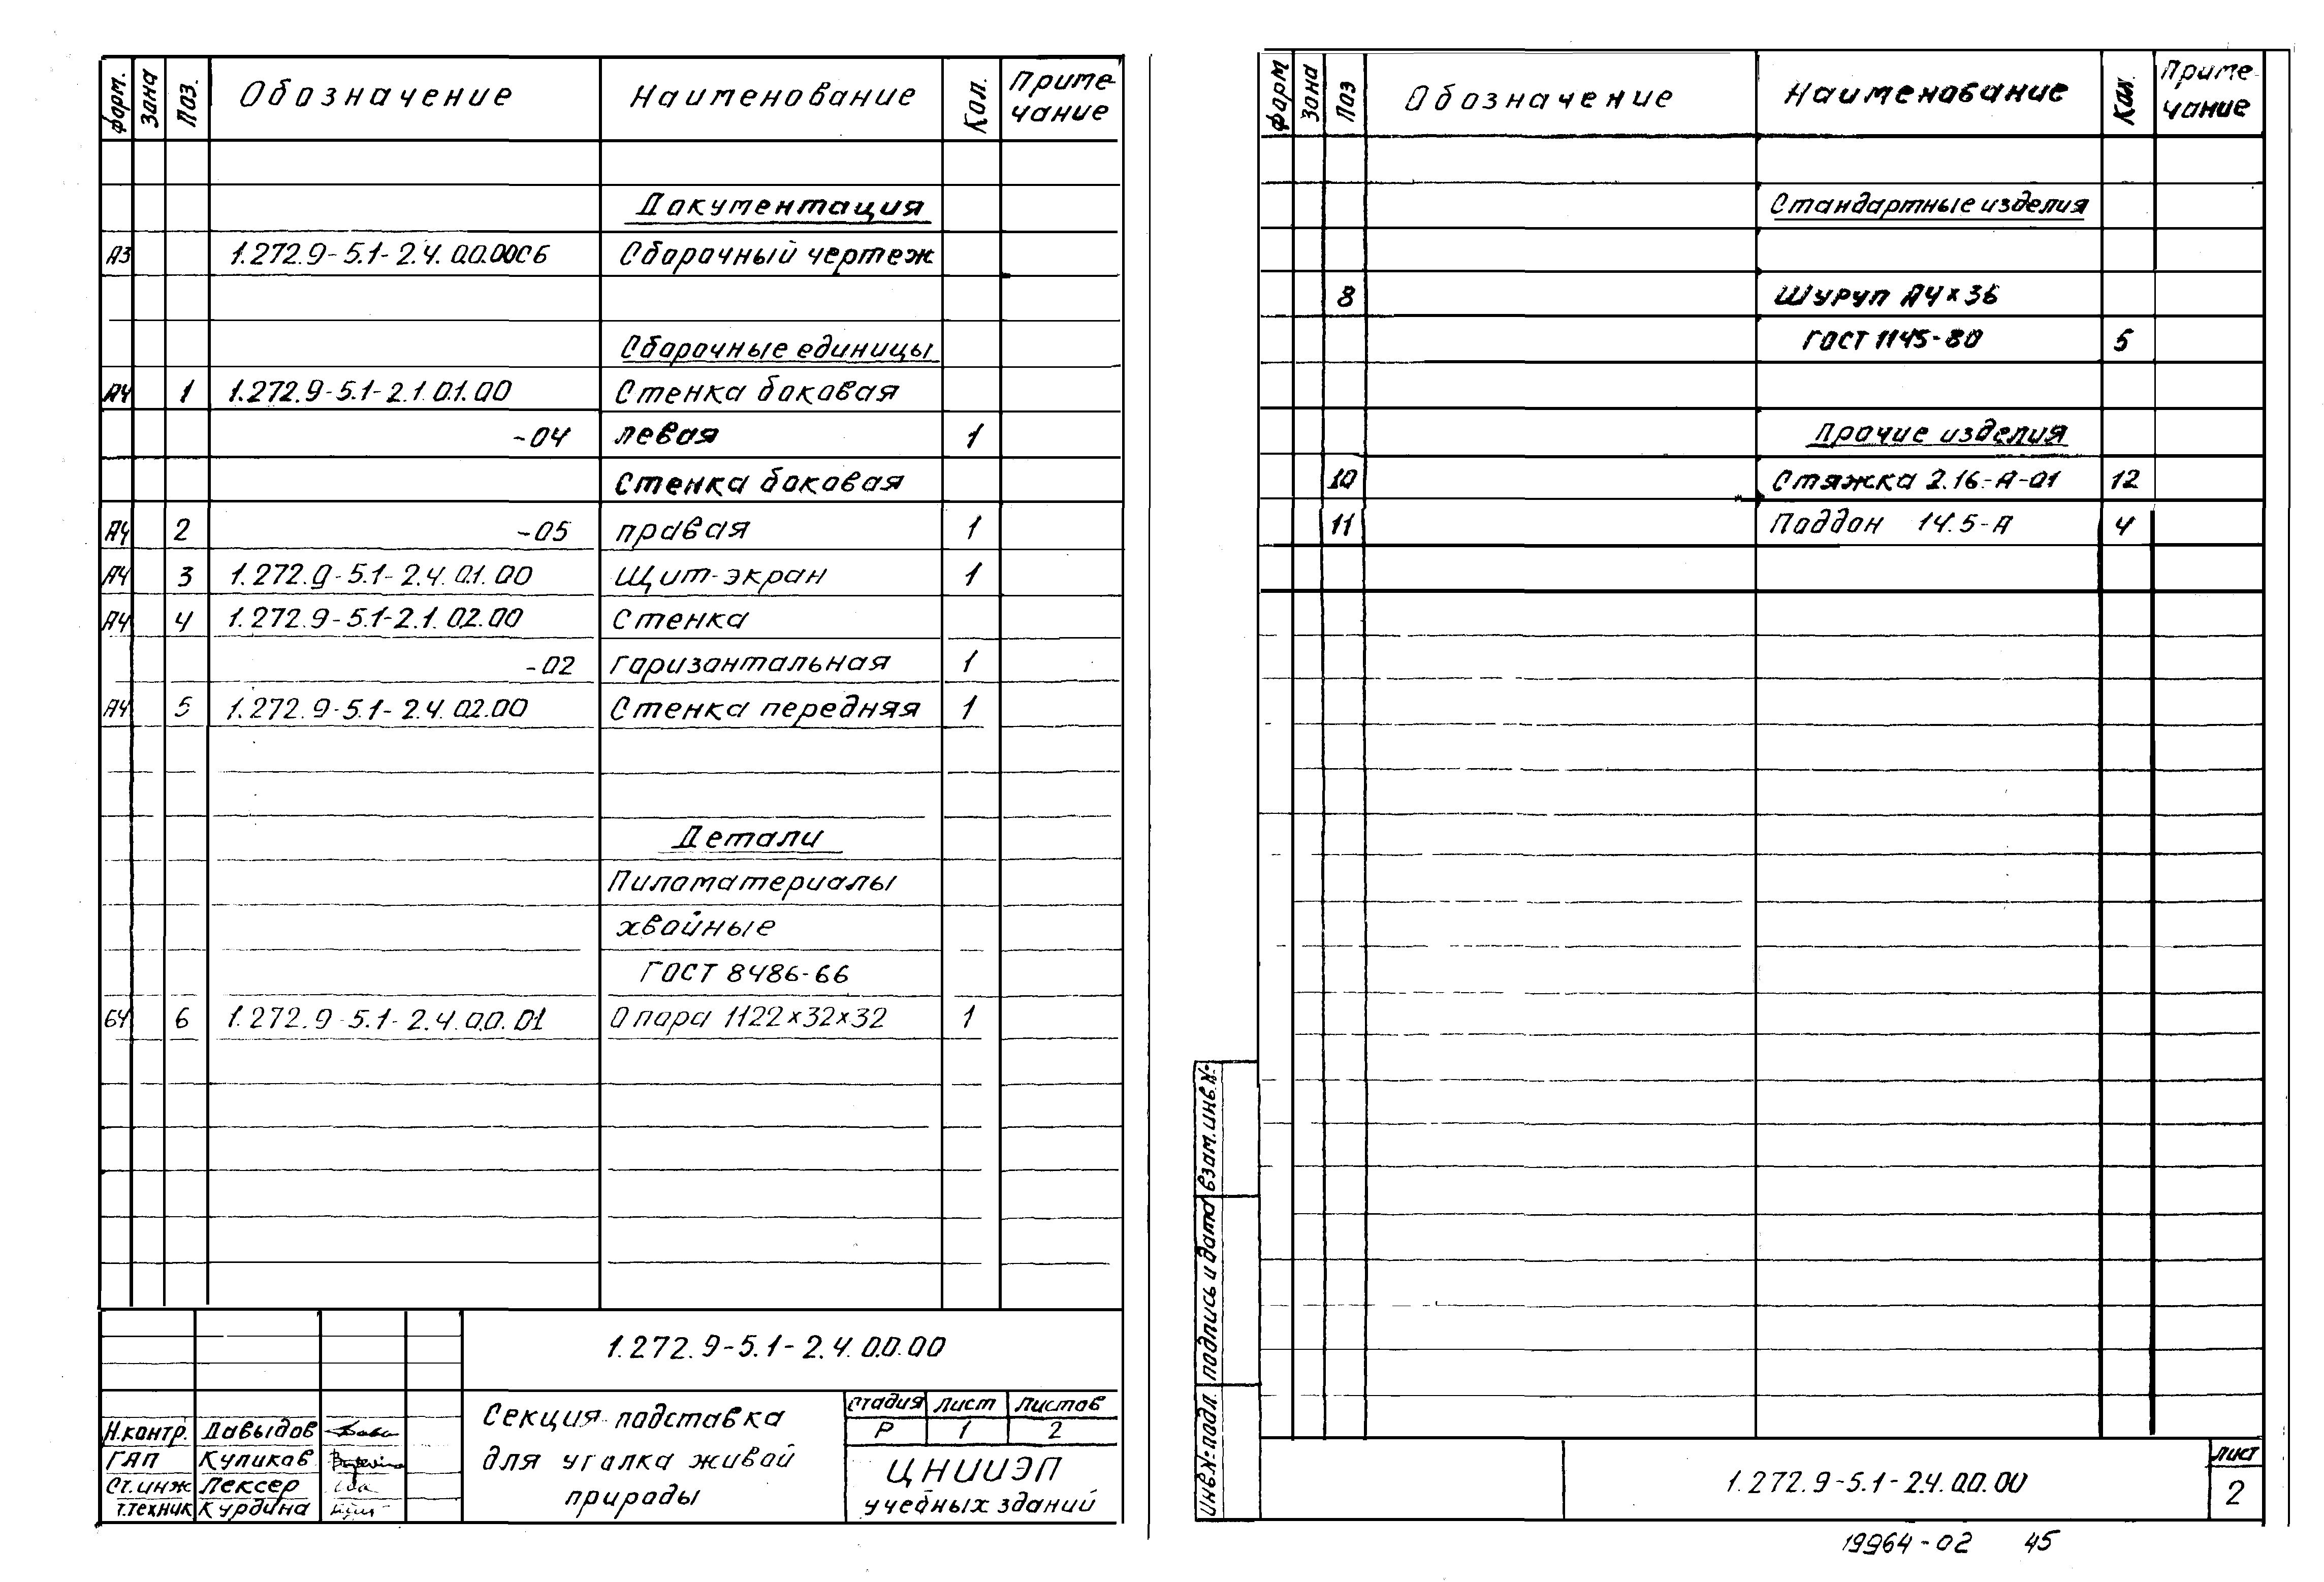 Форм. Зона Поз. Обозначение Наименование Кол. Приме-
чание
Документация
А3 1.272.9-5.1-2.4.00.00СБ Сборочный чертеж
Сборочные единицы
А4 1 1.272.9-5.1-2.1.01.00 Стенка боковая
-04 левая 1
Стенка боковая
А4 2 -05 правая 1
А4 3 1.272.9-5.1-2.4.01.00 Щит-экран 1
А4 4 1.272.9-5.1-2.1.02.00 Стенка
-02 горизонтальная 1
А4 5 1.272.9-5.1-2.4.02.00 Стенка передняя 1
Детали
Пиломатериалы
хвойные
ГОСТ 8486-66
БЧ 6 1.272.9-5.1-2.4.00.01 Опора 1122×32×32 1
1.272.9-5.1-2.4.00.00
Секция-подставка
для уголка живой
природы
Стадия Лист Листов
Р 1 2
ЦНИИЭП
учебных зданий
Н.контр. Давыдов
ГАП Куликов
Ст.инж Лексер
т.техник Курдина
Форм Зона Поз Обозначение Наименование Кол. Приме-
чание
Стандартные изделия
8 Шуруп А4×36
ГОСТ 1145-80 5
Прочие изделия
10 Стяжка 2.16-А-01 12
11 Поддон 14.5-А 4
Взам.инв.№
Подпись и дата
Инв.№ подл.
1.272.9-5.1-2.4.00.00
Лист
2
19964-02 45